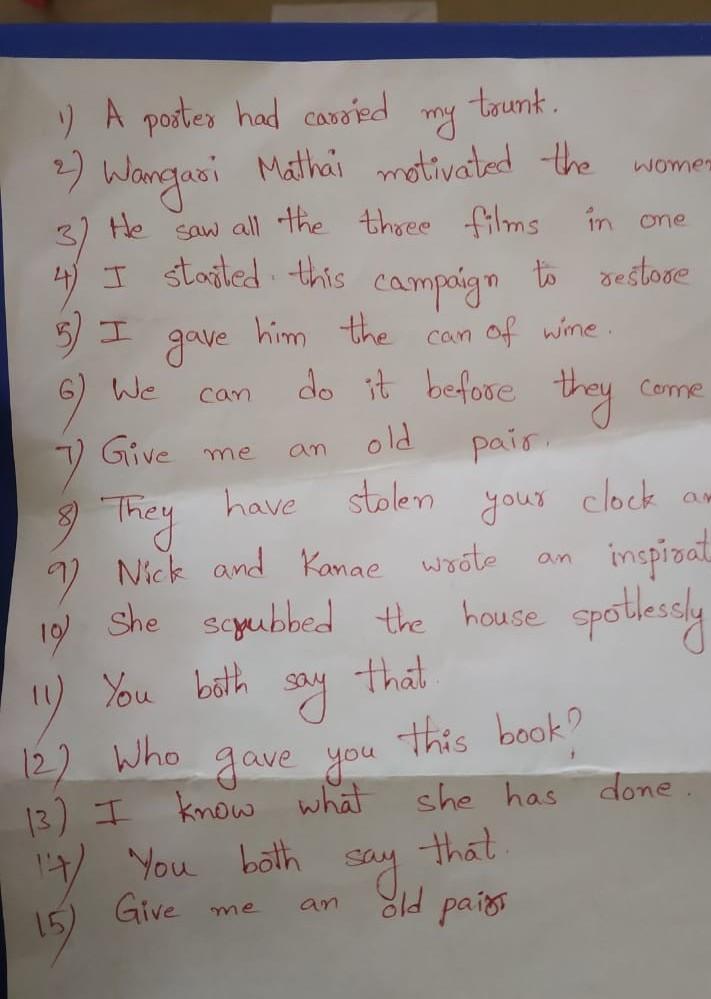 1) A porter had carried my trunk.
2) Wangari Mathai motivated the women
3) He saw all the three films in one
4) I started this campaign to restore
5) I gave him the can of wine.
6) We can do it before they come
7) Give me an old pair.
8) They have stolen your clock
9) Nick and Kanae wrote an
10) She scrubbed the house spotlessly
11) You both say that.
12) Who gave you this book?
13) I know what she has done.
14) You both say that.
15) Give me an old pair